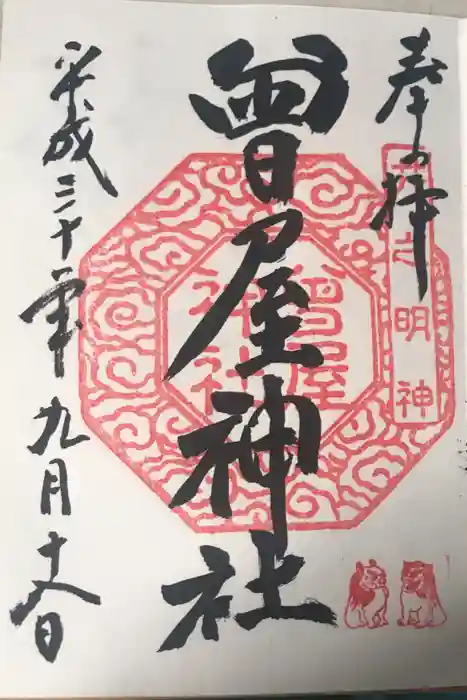 奉拝
井之明神
曽屋神社
曽屋
神社
平成三十年九月十日